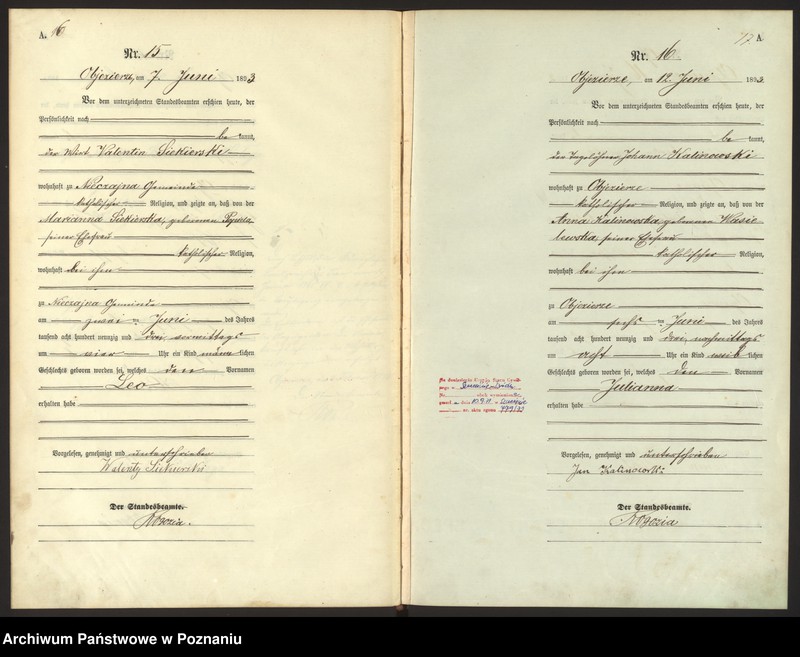 A. 16
Nr. 15.
Objezierze, am 7. Juni 1893
Vor dem unterzeichneten Standesbeamten erschien heute, der
Persönlichkeit nach
be kannt,
der Wirt Valentin Siekierski
wohnhaft zu Nieczajna Gemeinde
katholischer Religion, und zeigte an, daß von der
Marianna Siekierska, geborenen
seiner Ehefrau
katholischer Religion,
wohnhaft bei ihm
zu Nieczajna Gemeinde
am zwei ten Juni des Jahres
tausend acht hundert neunzig und drei, vormittags
um vier Uhr ein Kind männ lichen
Geschlechts geboren worden sei, welches den Vornamen
Leo
erhalten habe
Vorgelesen, genehmigt und unterschrieben
Walenty Siekierski
Der Standesbeamte.
Rogozia.
17 A
Nr. 16.
Objezierze, am 12. Juni 1893
Vor dem unterzeichneten Standesbeamten erschien heute, der
Persönlichkeit nach
be kannt,
der Tagelöhner Johann Kalinowski
wohnhaft zu Objezierze
katholischer Religion, und zeigte an, daß von der
Anna Kalinowska, geborenen Wasie-
lewska, seiner Ehefrau
katholischer Religion,
wohnhaft bei ihm
zu Objezierze
am sechs ten Juni des Jahres
tausend acht hundert neunzig und drei, nachmittags
um acht Uhr ein Kind weib lichen
Geschlechts geboren worden sei, welches den Vornamen
Julianna
erhalten habe
Vorgelesen, genehmigt und unterschrieben
Jan Kalinowski
Der Standesbeamte.
Rogozia
Archiwum Państwowe w Poznaniu